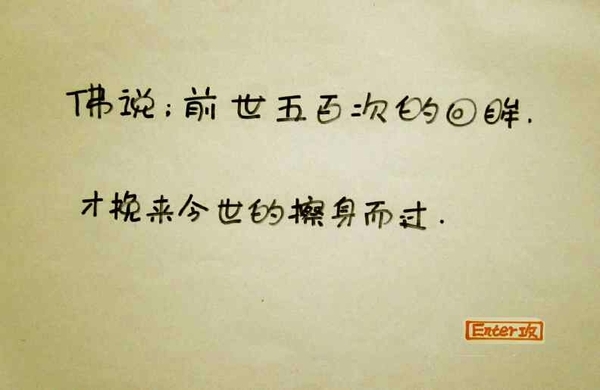 佛说：前世五百次的回眸.
才挽来今世的擦身而过.
Enter攻